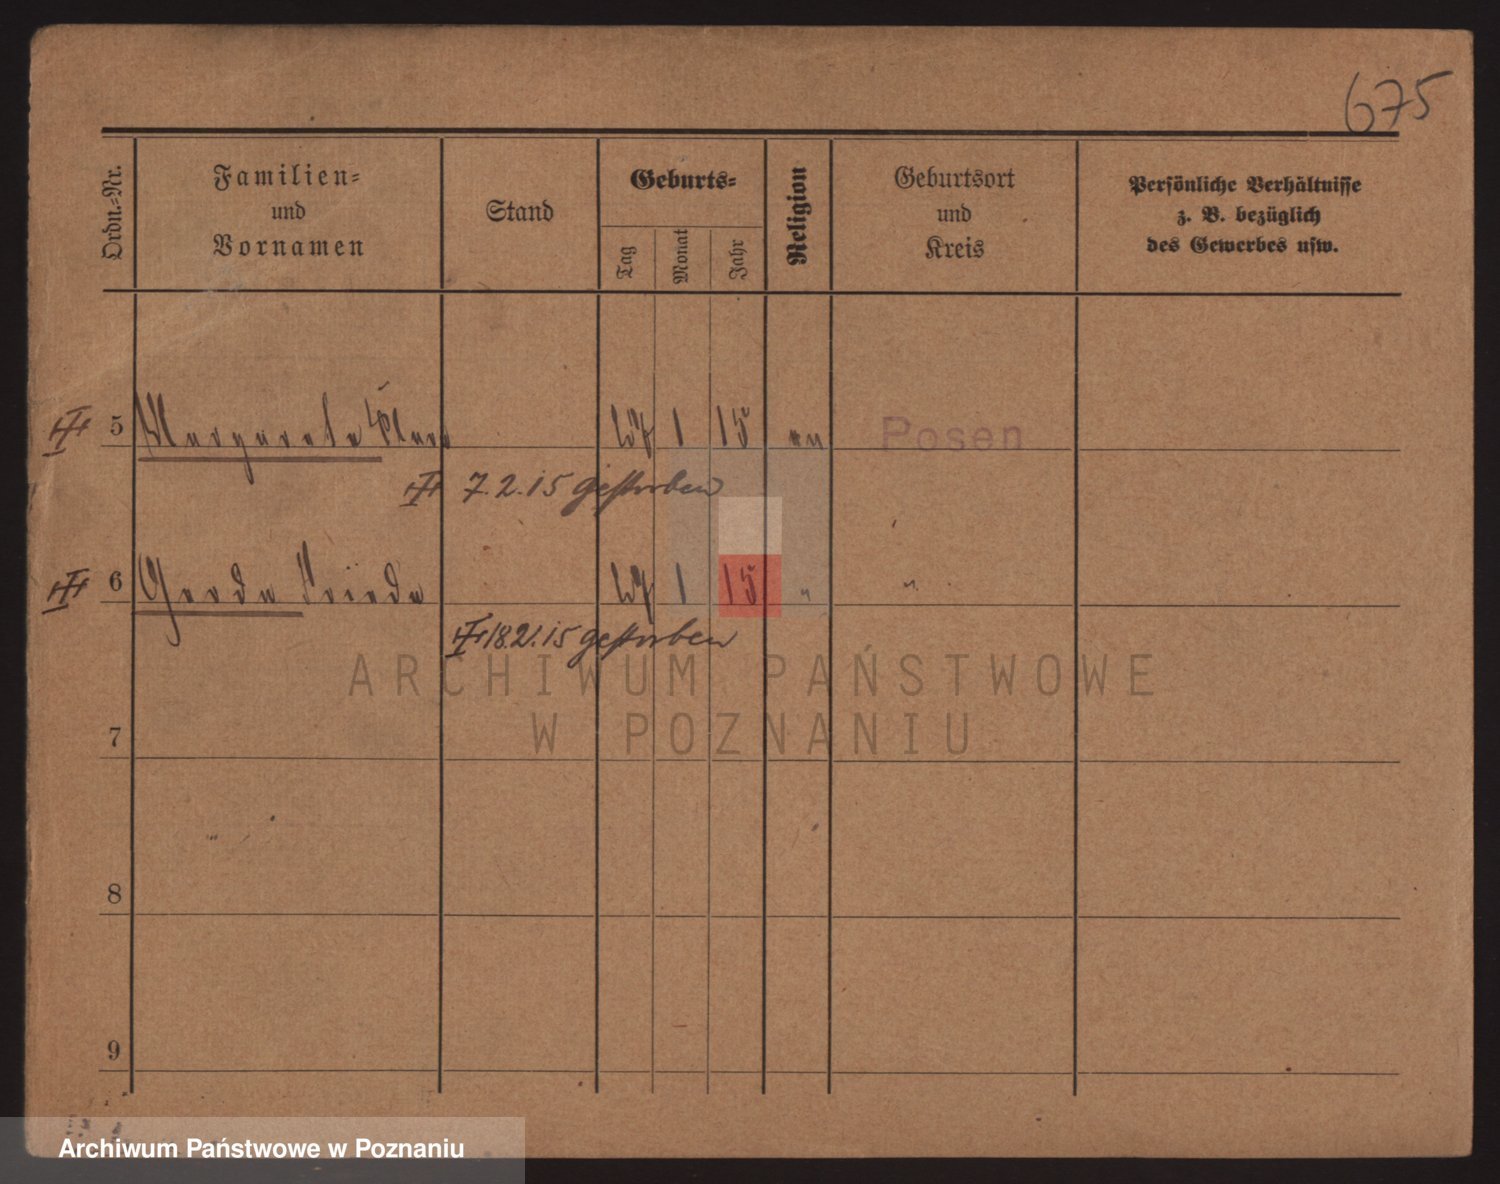 675
Ordn.-Nr.
Familien-
und
Vornamen
Stand
Geburts-
Tag
Monat
Jahr
Religion
Geburtsort
und
Kreis
Persönliche Verhältnisse
z. B. bezüglich
des Gewerbes usw.
5 Margarete Klara 27 1 15 ev Posen
7.2.15 gestorben
6 Gerda Frieda 27 1 15 " "
18.2.15 gestorben
7
8
9
ARCHIWUM PAŃSTWOWE
W POZNANIU
Archiwum Państwowe w Poznaniu